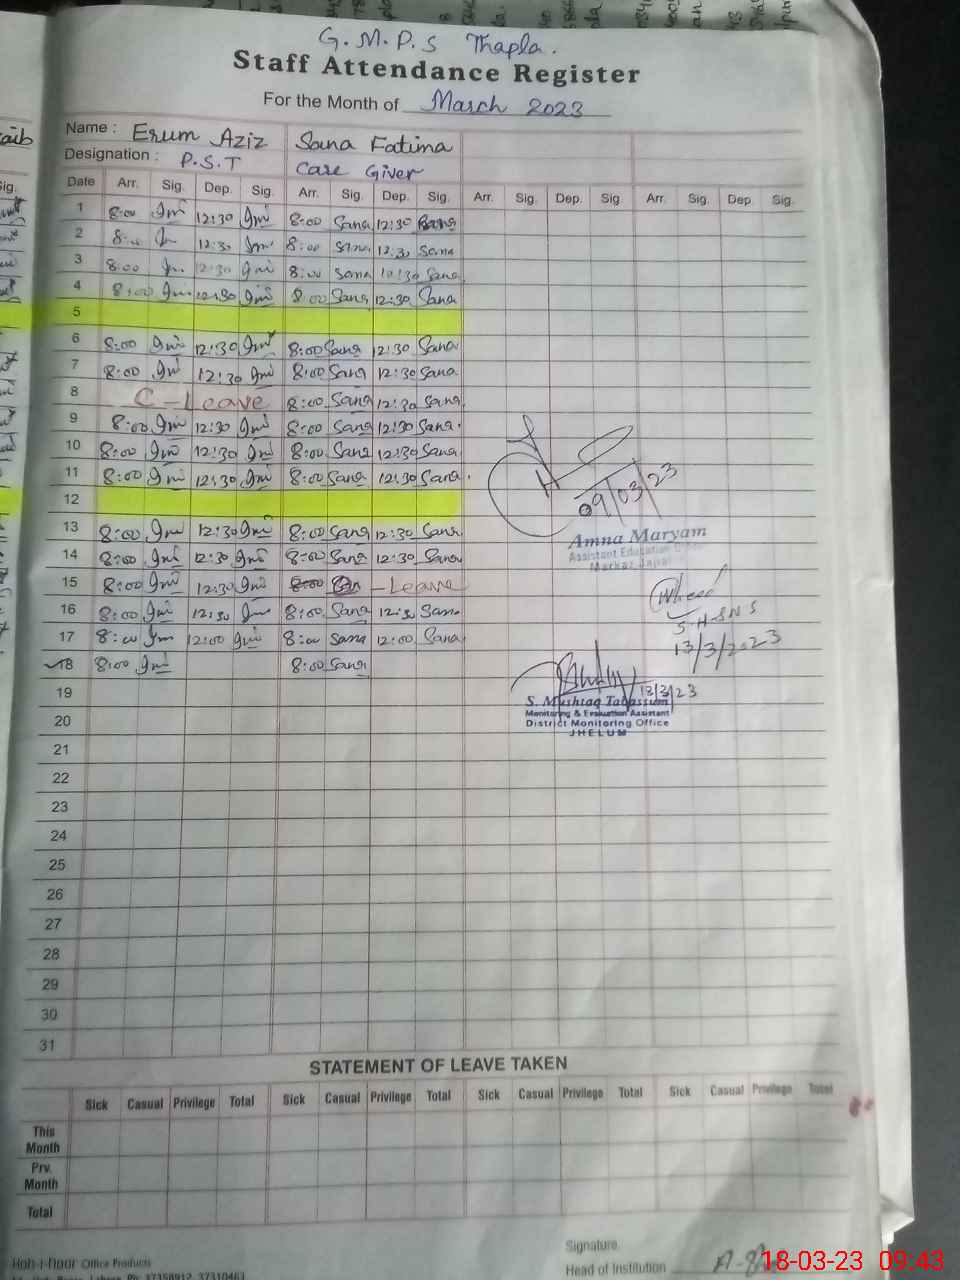 G.M.P.S Thapla.
Staff Attendance Register
For the Month of March 2023
Name : Erum Aziz Sana Fatima
Designation : P.S.T Care Giver
Date Arr. Sig. Dep. Sig. Arr. Sig. Dep. Sig. Arr. Sig. Dep. Sig. Arr. Sig. Dep. Sig.
1 8:00 12:30 8:00 Sana 12:30 Sana
2 8:00 12:30 8:00 Sana 12:30 Sana
3 8:00 12:30 8:00 Sana Sana
4 8:00 12:30 8:00 Sana 12:30 Sana
5
6 8:00 12:30 8:00 Sana 12:30 Sana
7 8:00 12:30 8:00 Sana 12:30 Sana
8 C-Leave 8:00 Sana 12:30 Sana
9 8:00 12:30 8:00 Sana 12:30 Sana
10 8:00 12:30 8:00 Sana 12:30 Sana
11 8:00 12:30 8:00 Sana 12:30 Sana
12
13 8:00 12:30 8:00 Sana 12:30 Sana
14 8:00 12:30 8:00 Sana 12:30 Sana
15 8:00 12:30 8:00 -Leave
16 8:00 12:30 8:00 Sana 12:30 Sana
17 8:00 12:00 8:00 Sana 12:00 Sana
18 8:00 8:00 Sana
19
20
21
22
23
24
25
26
27
28
29
30
31
09/03/23
Amna Maryam
Assistant Education
Markaz Jajial
S.H.SNS
13/3/2023
13/3/23
S. Mushtaq Tabassum
Monitoring & Evaluation Assistant
District Monitoring Office
JHELUM
STATEMENT OF LEAVE TAKEN
Sick Casual Privilege Total Sick Casual Privilege Total Sick Casual Privilege Total Sick Casual Privilege Total
This Month
Prv. Month
Total
Office Products
Signature
Head of Institution
18-03-23 09:43